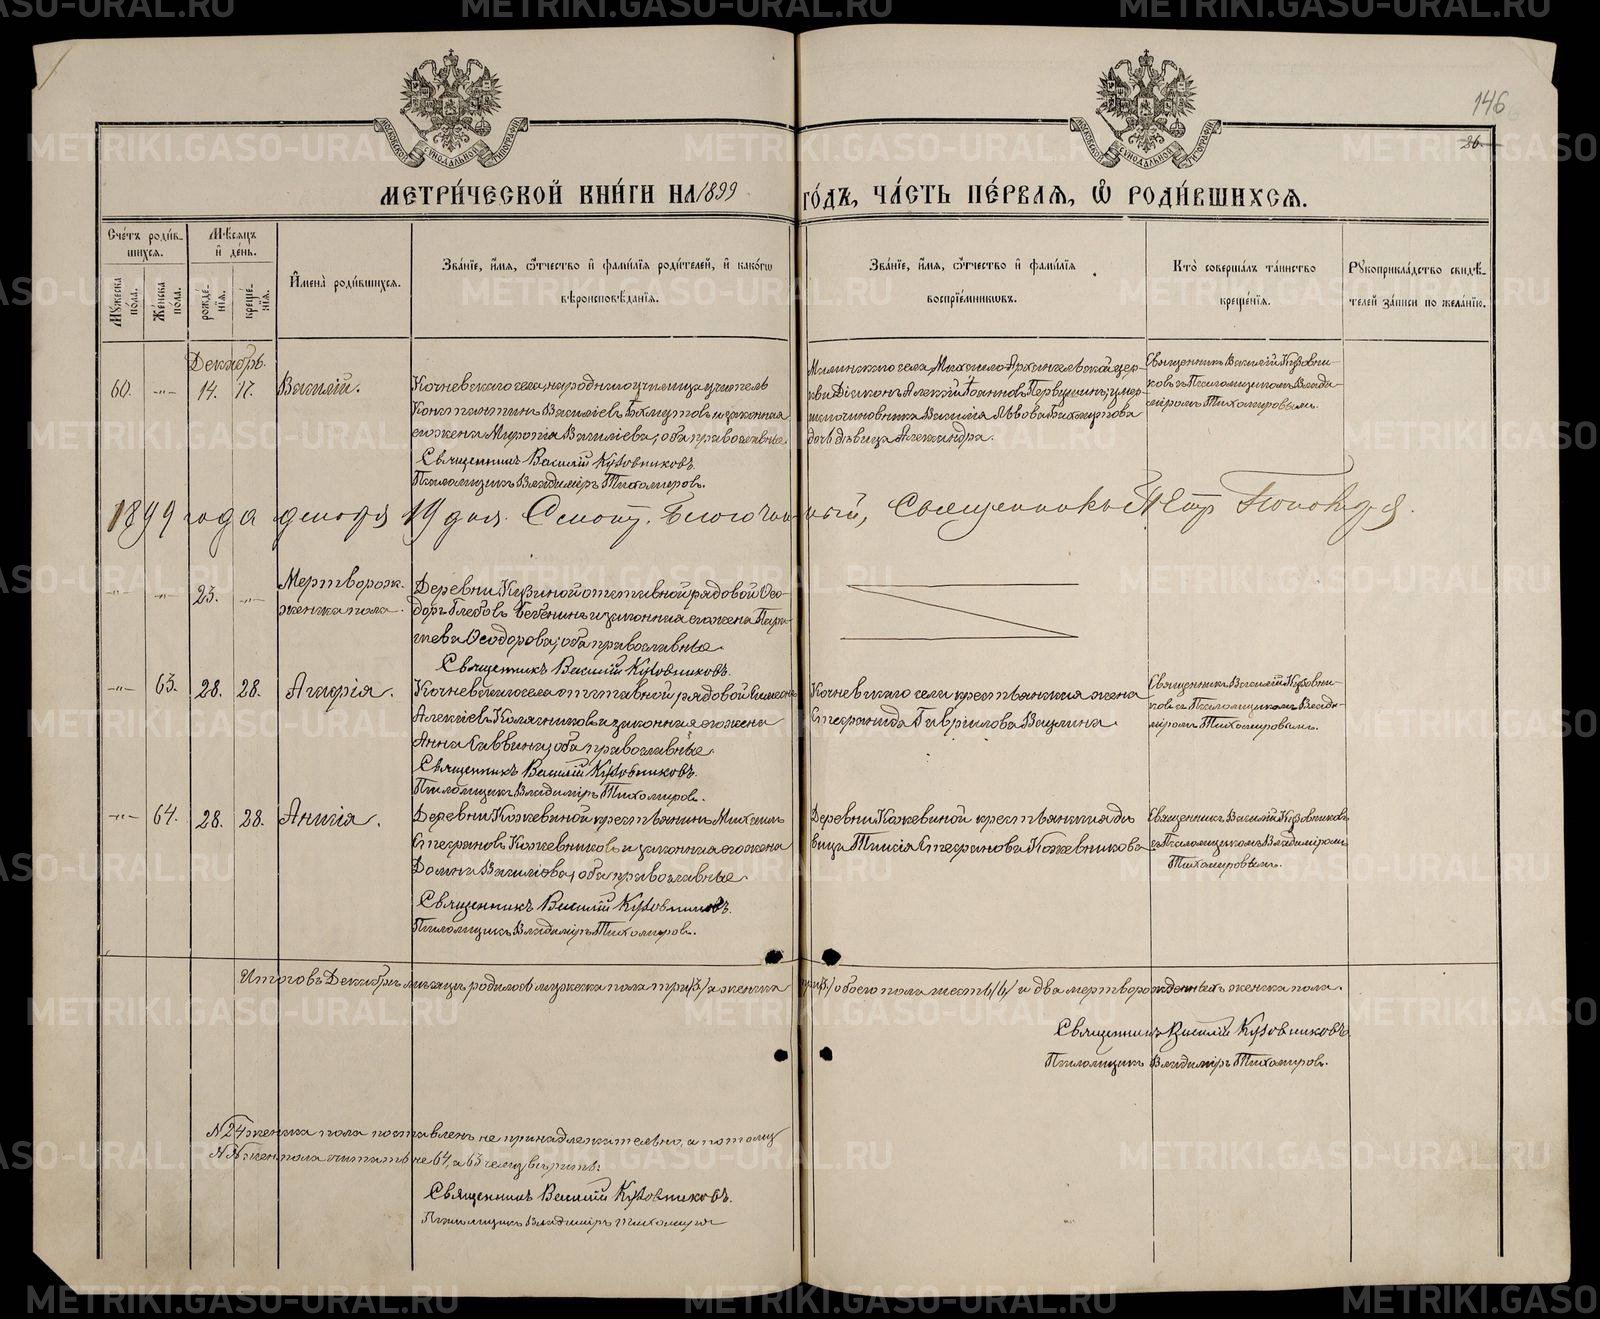 METRIKI.GASO-URAL.RU
146
26.
МОСКОВСКОЙ СУНОДАЛЬНОЙ ТИПОГРАФІИ
МОСКОВСКОЙ СУНОДАЛЬНОЙ ТИПОГРАФІИ
МЕТРИ́ЧЕСКОЙ КНИ́ГИ НА 1899 ГО́ДЪ, ЧА́СТЬ ПЕ́РВАЯ, Ѡ РОДИ́ВШИХСЯ.
Сче́тъ роди́вшихся.
Му́жеска пола.
Же́нска пола.
Мѣ́сяцъ и де́нь.
рожде́нїя.
креще́нїя.
Имена̀ роди́вшихся.
Зва́нїе, и́мя, ѻ́тчество и фами́лїя роди́телей, и како́гѡ вѣроисповѣ́данїя.
Зва́нїе, и́мя, ѻ́тчество и фами́лїя воспрїе́мниковъ.
Кто̀ соверша́лъ та́инство креще́нїя.
Рукоприкла́дство свидѣ́телей за́писи по жела́нїю.
Декабрь.
60. -"- 14. 17. Василій.
Кочневскаго села, народнаго училища учитель
Константинъ Василіевъ Бахмутовъ и законная
его жена Миропія Василіева; оба православные
Священникъ Василій Кузовниковъ.
Псаломщикъ Владиміръ Тихомировъ.
села Михаило-Архангельской цер-
кви Діаконъ Алексій Іоанновъ Первушинъ; умер-
шаго чиновника Василія Львова Бахмутова
дочь дѣвица Александра.
Священникъ Василій Кузовни-
ковъ съ Псаломщикомъ Влади-
міромъ Тихомировымъ.
1899 года декабря 19 дня. Благочинный, Священникъ Петр
-"- -"- 23. -"- Мертворож.
женска пола.
Деревни отставной рядовой Ѳео-
доръ Глебовъ и законная его жена Пара-
скева Ѳеодорова; оба православные.
Священникъ Василій Кузовниковъ.
-"- 63. 28. 28. Агапія.
Кочневскаго села отставной рядовой Симеонъ
Алексіевъ и законная его жена
Анна Саввина; оба православные.
Священникъ Василій Кузовниковъ.
Псаломщикъ Владиміръ Тихомировъ.
Кочневскаго села крестьянская жена
Стефанида Гаврилова Ващлина.
Священникъ Василій Кузовни-
ковъ съ Псаломщикомъ Влади-
міромъ Тихомировымъ.
-"- 64. 28. 28. Анисія.
Деревни Кожевиной крестьянинъ Михаилъ
Стефановъ Кожевниковъ и законная его жена
Домна Василіева; оба православные.
Священникъ Василій Кузовниковъ.
Псаломщикъ Владиміръ Тихомировъ.
Деревни Кожевиной крестьянская дѣ-
вица Таисія Стефанова Кожевникова
Священникъ Василій Кузовниковъ
съ Псаломщикомъ Владиміромъ
Тихомировымъ.
Итого въ Декабрѣ мѣсяцѣ родилось мужеска пола три /3/ а женска три /3/ обоего пола шесть /6/ и два мертворожденныхъ женска пола.
Священникъ Василій Кузовниковъ.
Псаломщикъ Владиміръ Тихомировъ.
N 24 женска пола поставленъ не принадлежательно, а потому
женска пола считать не 64, а 63
Священникъ Василій Кузовниковъ.
Псаломщикъ Владиміръ Тихомировъ